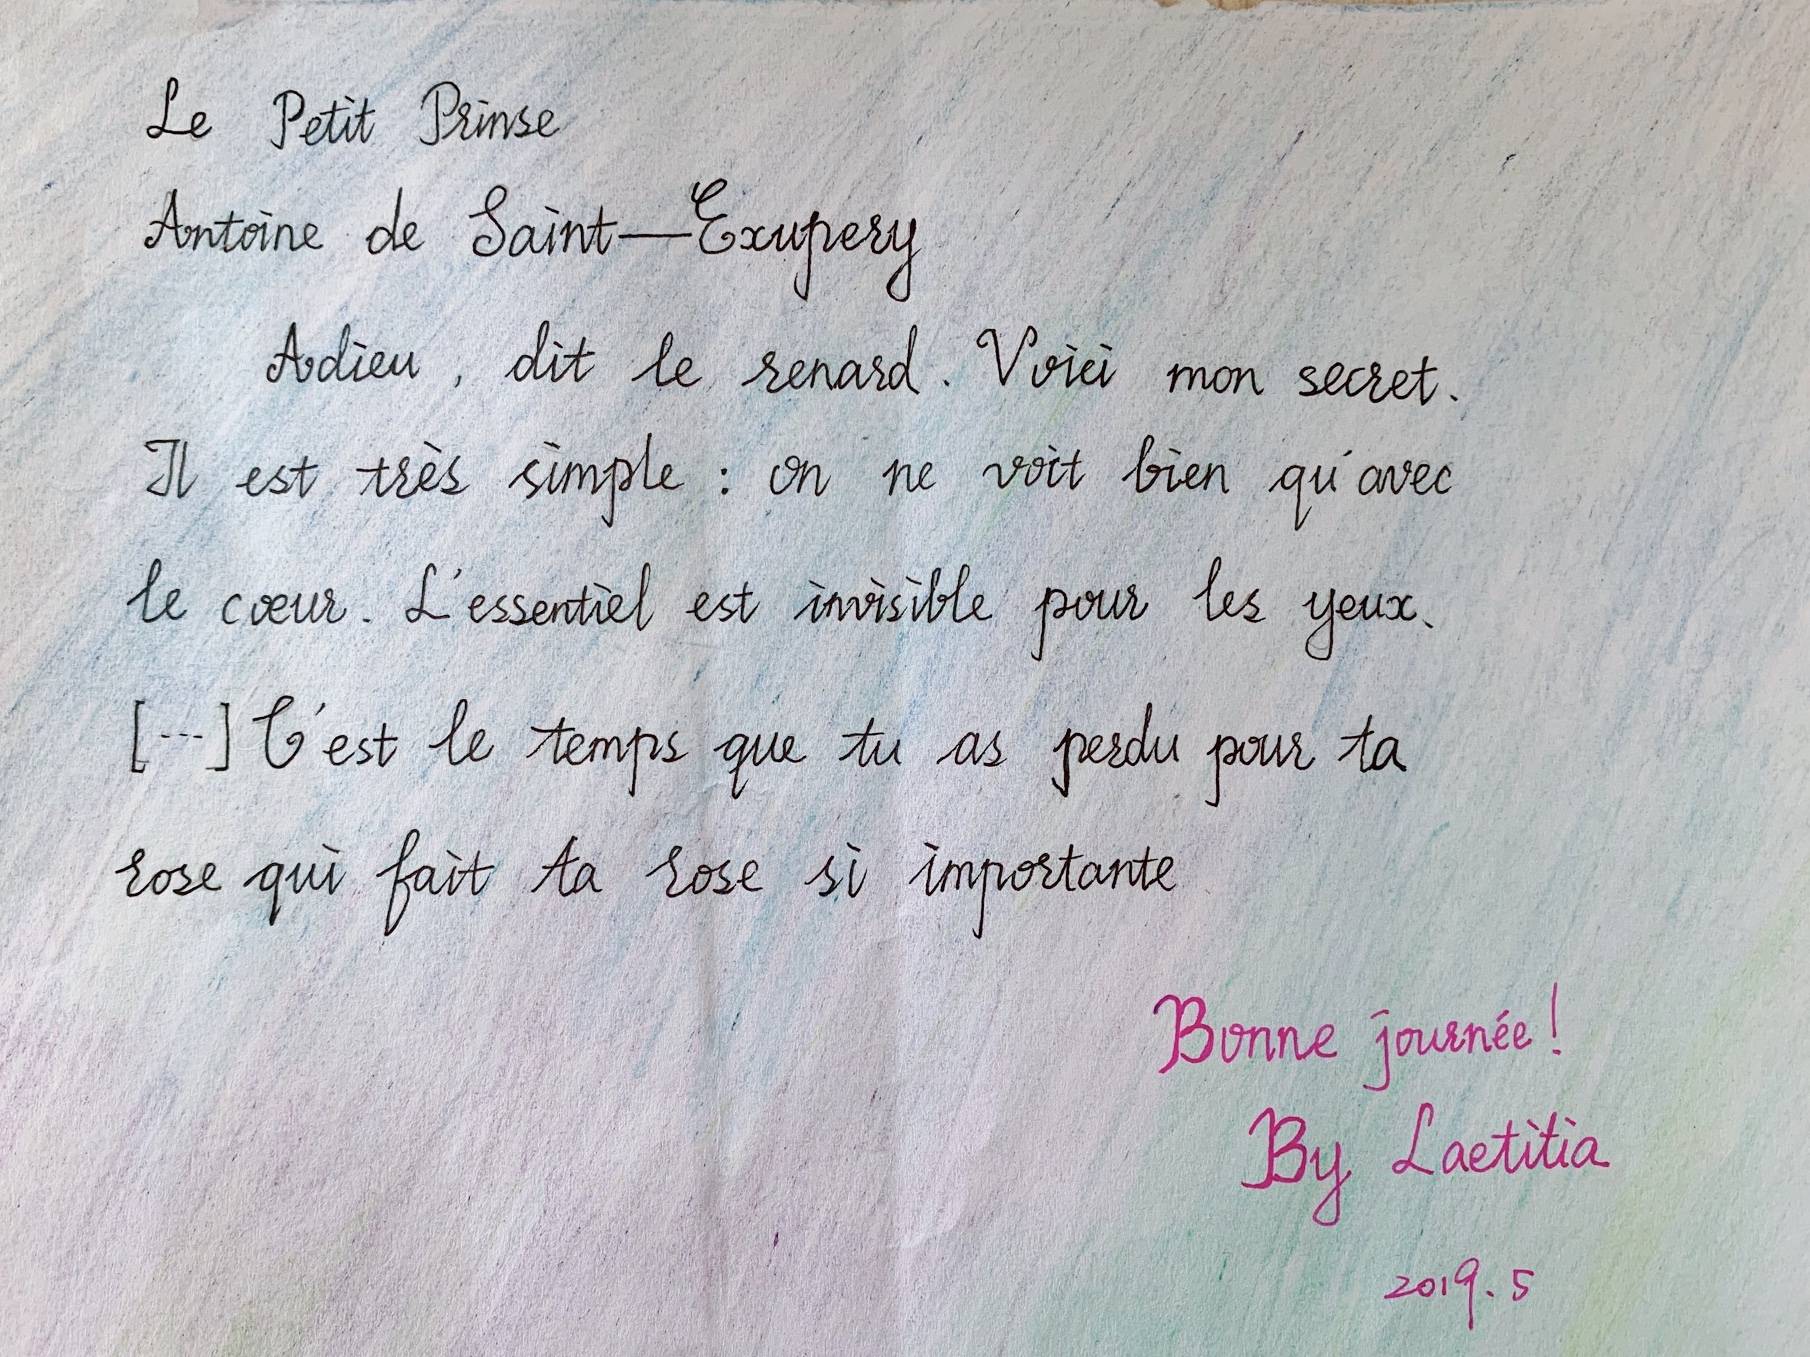 Le Petit Prinse
Antoine de Saint—Exupery
Adieu, dit le renard. Voici mon secret.
Il est très simple : on ne voit bien qu'avec
le cœur. L'essentiel est invisible pour les yeux.
[---] C'est le temps que tu as perdu pour ta
rose qui fait ta rose si importante
Bonne journée!
By Laetitia
2019.5